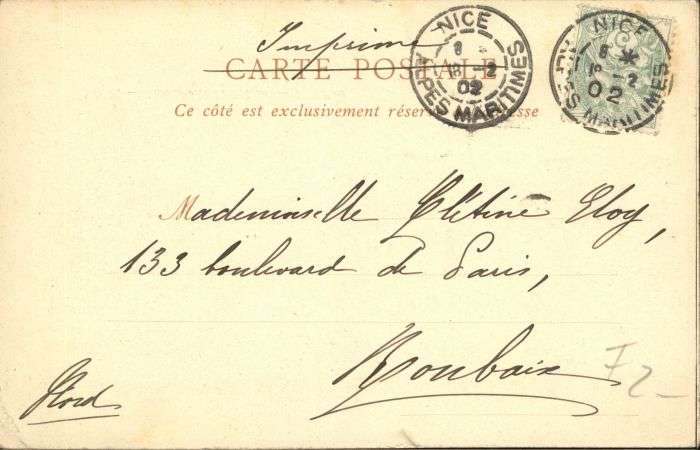 Imprimé
CARTE POSTALE
Ce côté est exclusivement réser esse
NICE
8
18 2
02
ALPES MARITIMES
NICE
8 *
18 2
02
MARITIMES
Mademoiselle Eloy,
133 boulevard de Paris,
Roubaix
Nord